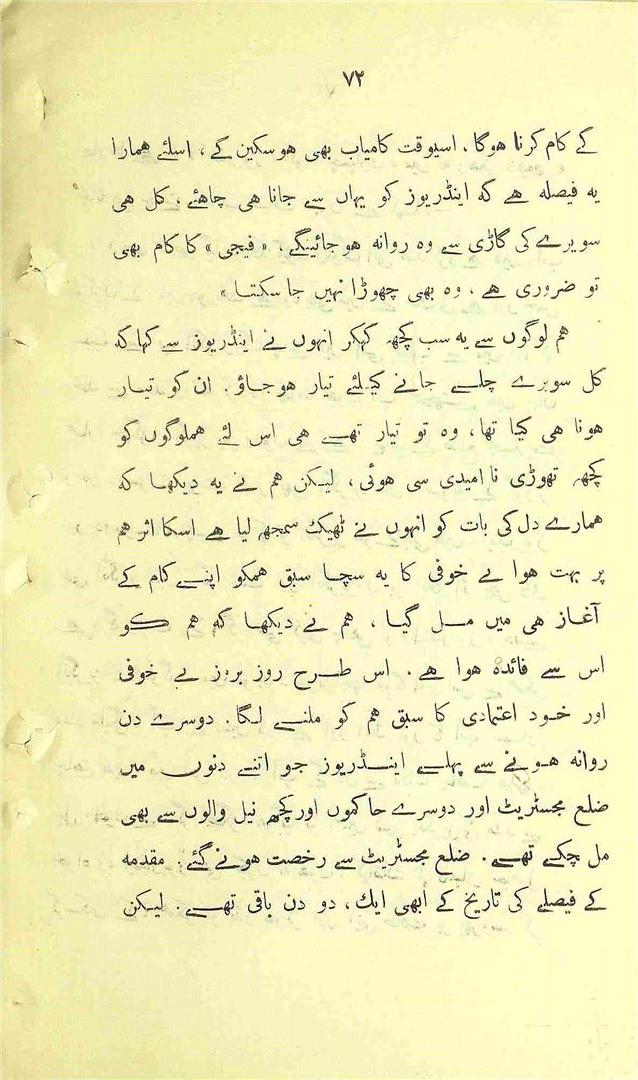 ۷۲
کے کام کرنا ہوگا، اسیوقت کامیاب بھی ہوسکین گے، اسلئے ہمارا
یہ فیصلہ ہے کہ اینڈریوز کو یہاں سے جانا ہی چاہئے، کل ہی
سویرے کی گاڑی سے وہ روانہ ہوجائینگے، «فیجی» کا کام بھی
تو ضروری ہے، وہ بھی چھوڑا نہیں جاسکتا»
ہم لوگوں سے یہ سب کچھ کہکر انہوں نے اینڈریوز سے کہا کہ
کل سویرے چلے جانے کیلئے تیار ہوجاؤ. ان کو تیار
ہونا ہی کیا تھا، وہ تو تیار تھے ہی اس لئے ہملوگوں کو
کچھ تھوڑی نا امیدی سی ہوئی، لیکن ہم نے یہ دیکھا کہ
ہمارے دل کی بات کو انہوں نے ٹھیک سمجھ لیا ہے اسکا اثر ہم
پر بہت ہوا بے خوفی کا یہ سچا سبق ہمکو اپنے کام کے
آغاز ہی میں مل گیا، ہم نے دیکھا کہ ہم کو
اس سے فائدہ ہوا ہے. اس طرح روز بروز بے خوفی
اور خود اعتمادی کا سبق ہم کو ملنے لگا. دوسرے دن
روانہ ہونے سے پہلے اینڈریوز جو اتنے دنوں میں
ضلع مجسٹریٹ اور دوسرے حاکموں اور کچھ نیل والوں سے بھی
مل چکے تھے. ضلع مجسٹریٹ سے رخصت ہونے گئے. مقدمہ
کے فیصلے کی تاریخ کے ابھی ایک، دو دن باقی تھے. لیکن